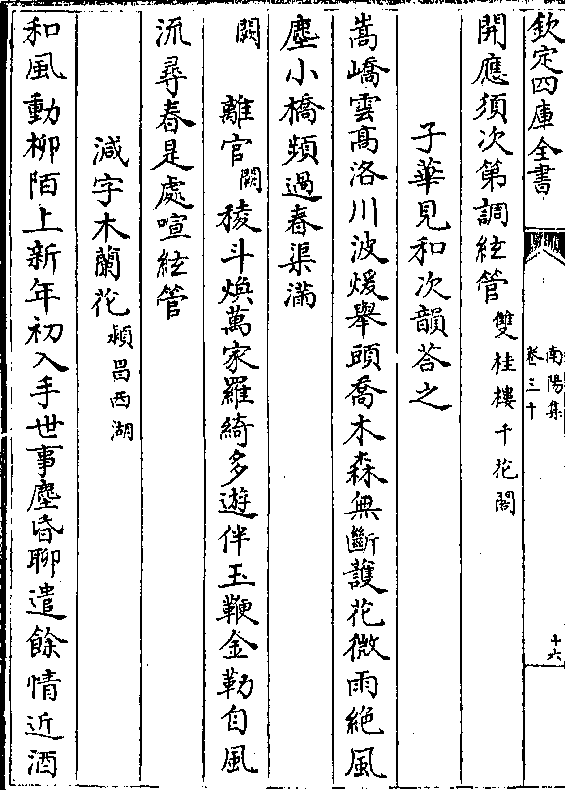 欽定四庫全書
南陽集
卷三十
十六
開應須次第調絃管雙桂樓千花閣
子華見和次韻荅之
嵩嶠雲髙洛川波煖舉頭喬木森無斷䕶花微雨絶風
塵小橋頻過春渠滿
闕離宫闕稜斗煥萬家羅綺多遊伴玉鞭金勒自風
流尋春是處喧絃管
減字木蘭花潁昌西湖
和風動柳陌上新年初入手世事塵昏聊遣餘情近酒